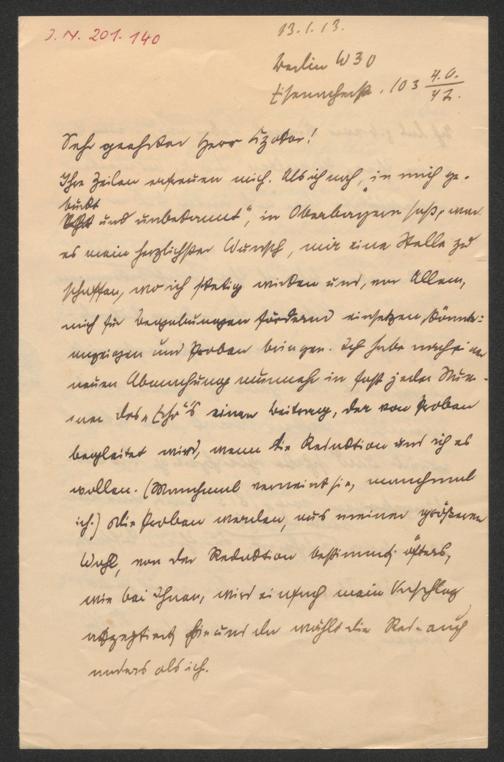 J. N. 201.140
13.1.13.
Berlin W 30
Eisenacherstr. 103 4.0./42.
Sehr geehrter Herr
Ihre Zeilen erfreuen mich. Als ich noch, „in mich ge-
buckt
und unbekannt", in Oberbayern saß, war
es mein herzlichster Wunsch, mir eine Stelle zu
schaffen, wo ich stetig wirken und, vor Allem,
mich für Begabungen fördernd einsetzen könnte:
anzeigen und Proben bringen. Ich habe nach einer
neuen Abmachung nunmehr in fast jeder Num-
mer des „Echo's" einen Beitrag, der von Proben
begleitet wird, wenn die Redaktion und ich es
wollen. (Manchmal verneint sie, manchmal
ich.) Die Proben werden, aus meiner größeren
Wahl, von der Redaktion bestimmt; öfters,
wie bei Ihnen, wird einfach mein Vorschlag
akzeptiert, hie und da wählt die Red. auch
anders als ich.